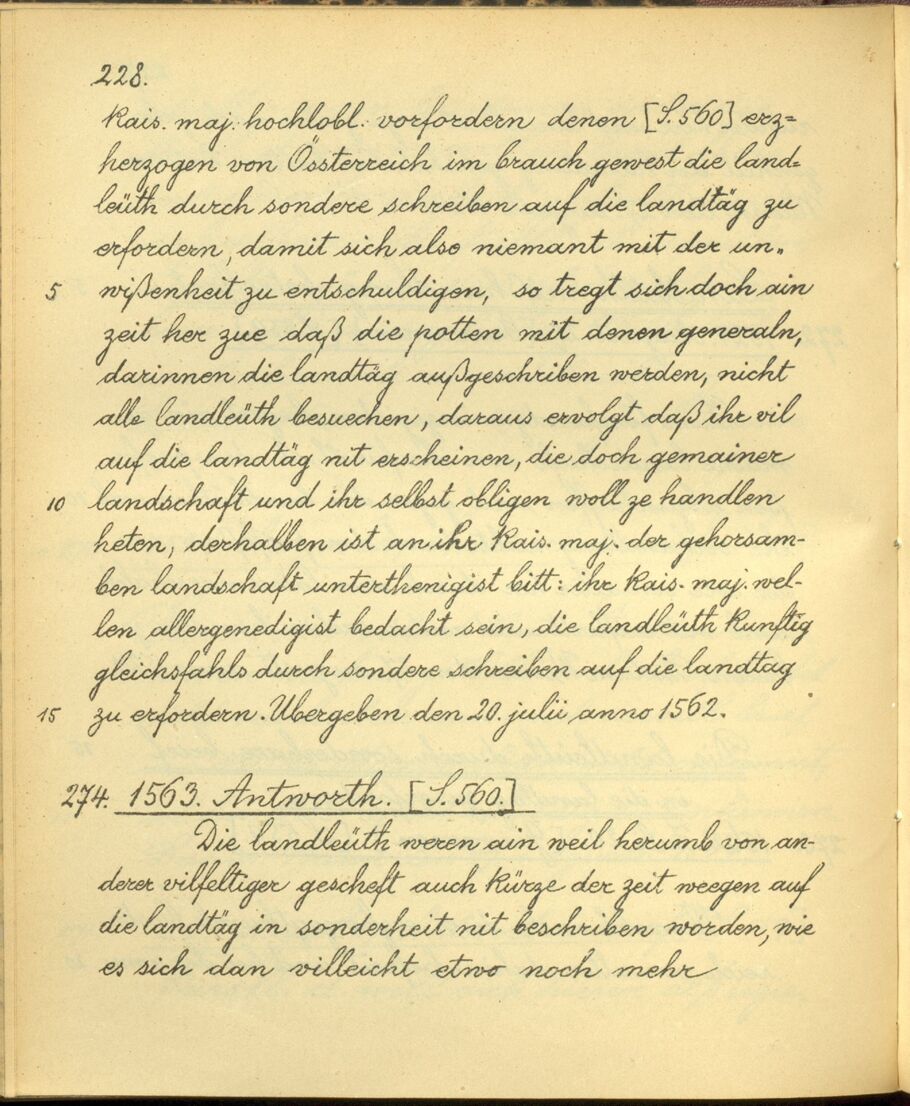 228.
kais. maj. hochlobl. vorfordern denen [S. 560] erz=
herzogen von Össterreich im brauch gewest die land=
leüth durch sondere schreiben auf die landtäg zu
erfordern, damit sich also niemant mit der un„
5 wißenheit zu entschuldigen, so tregt sich doch ain
zeit her zue daß die potten mit denen generaln,
darinnen die landtäg außgeschriben werden, nicht
alle landleüth besuechen, daraus ervolgt daß ihr vil
auf die landtäg nit erscheinen, die doch gemainer
10 landschaft und ihr selbst obligen woll ze handlen
heten, derhalben ist an ihr kais. maj. der gehorsam-
ben landschaft unterthenigist bitt: ihr kais. maj. wel-
len allergenedigist bedacht sein, die landleüth kunftig
gleichsfahls durch sondere schreiben auf die landtag
15 zu erfordern. Ubergeben den 20. julii anno 1562.
274. 1563. Antworth. [S. 560.]
Die landleüth weren ain weil herumb von an-
derer vilfeltiger gescheft auch kürze der zeit weegen auf
die landtäg in sonderheit nit beschriben worden, wie
es sich dan villeicht etwo noch mehr